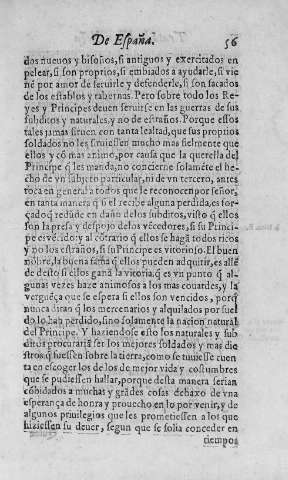 De España. 56
dos nueuos y bisoños, si antiguos y exercitados en
pelear, si son proprios, si embiados a ayudarle, si vie
nẽ por amor de seruirle y defenderle, si son sacados
de los establos y tabernas. Pero sobre todo los Re-
yes y Principes deuen seruirse en las guerras de sus
subditos y naturales, y no de estraños. Porque estos
tales jamas siruen con tanta lealtad, que sus proprios
soldados no les siruiessen mucho mas fielmente que
ellos y cõ mas animo, por causa que la querella del
Principe q̃ les manda, no concierne solamẽte el he-
cho de vn subjeto particular, ni de vn tercero, antes
toca en general a todos que le reconocen por señor,
en tanta manera q̃ si el recibe alguna perdida, es for-
çado q̃ redũde en daño de los subditos, visto q̃ ellos
son la presa y despojo de los vẽcedores, si su Princi-
pe es vẽcido: y al cõtrario q̃ ellos se hagã todos ricos
y no los estraños, si su Principe es vitorioso. El buen
nõbre, la buena fama q̃ ellos pueden adquirir, es allẽ
de desto si ellos ganã la vitoria, q̃ es vn punto q̃ al-
gunas vezes haze animosos a los mas couardes, y la
verguẽça que se espera si ellos son vencidos, porq̃
nunca diran q̃ los mercenarios y alquilados por suel
do lo han perdido, sino solamente la nacion natural
del Principe. Y haziendose esto los naturales y sub-
ditos procurarã ser los mejores soldados y mas die
stros q̃ huessen sobre la tierra, como se tuuiesse cuen
ta en escoger los de los de mejor vida y costumbres
que se pudiessen hallar, porque desta manera serian
cõbidados a muchas y grãdes cosas debaxo de vna
esperança de honra y prouecho en lo por venir, y de
algunos priuilegios que les prometiessen a los que
hiziessen su deuer, segun que se solia conceder en
tiempos